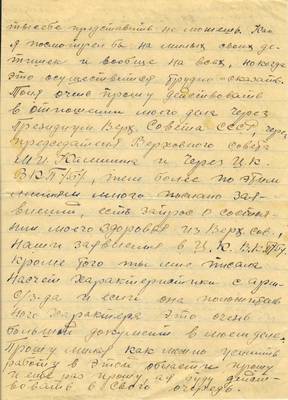 ты себе представить не можешь. Как
я посмотрел бы на милых своих де-
тишек и вообще на всех, но когда
это осуществится трудно сказать.
Тоня очень прошу действовать
в отношении моего дела через
Президиум Верх. Совета СССР, через
председателя Верховного совета
М.И. Калинина и через Ц.К.
В.К.П/б/, тем более по этим
много послано зая-
влений, есть запрос о состоя-
нии моего здоровья из Верх. сов.,
Наши заявления в Ц.К. В.К.П/б/.
Кроме того ты мне писала
насчет характеристики с
з-да и если она положитель-
ного характера это очень
большой документ в моем деле.
Прошу милая как можно усилить
работу в этой области прошу
и еще раз прошу, а я буду дейст-
вовать в свою очередь.